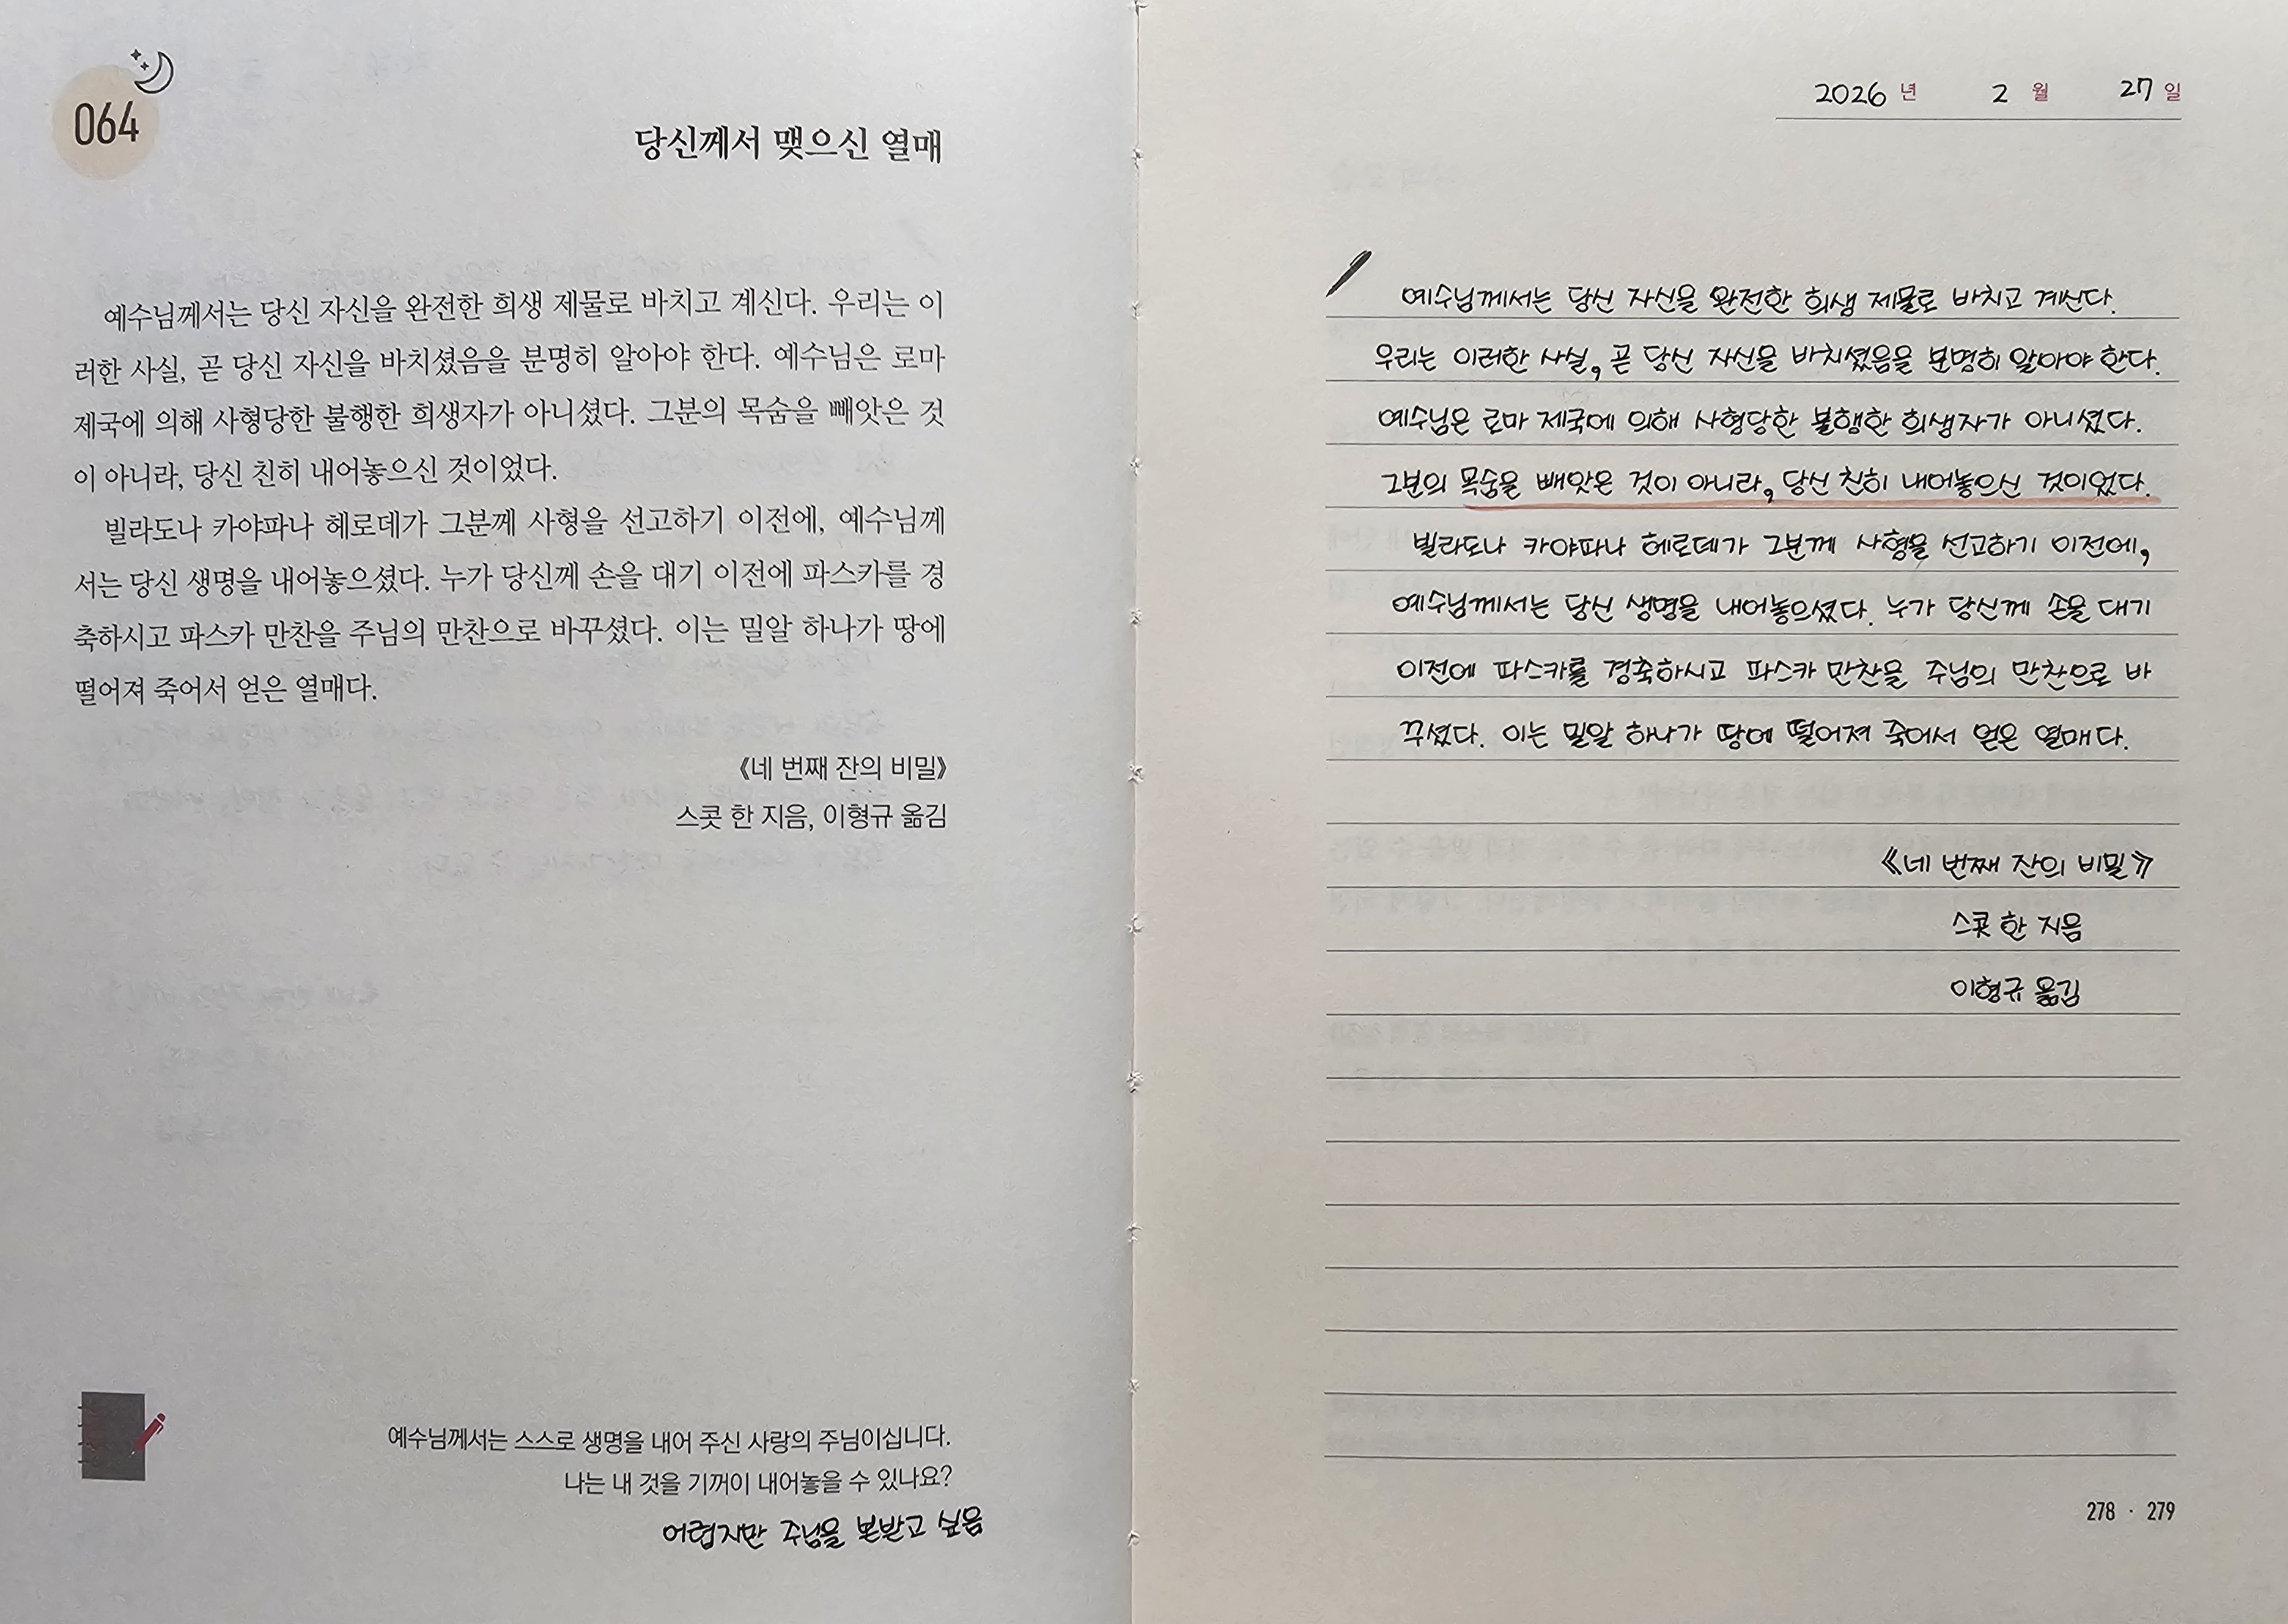 064
당신께서 맺으신 열매
예수님께서는 당신 자신을 완전한 희생 제물로 바치고 계신다. 우리는 이
러한 사실, 곧 당신 자신을 바치셨음을 분명히 알아야 한다. 예수님은 로마
제국에 의해 사형당한 불행한 희생자가 아니셨다. 그분의 목숨을 빼앗은 것
이 아니라, 당신 친히 내어놓으신 것이었다.
빌라도나 카야파나 헤로데가 그분께 사형을 선고하기 이전에, 예수님께
서는 당신 생명을 내어놓으셨다. 누가 당신께 손을 대기 이전에 파스카를 경
축하시고 파스카 만찬을 주님의 만찬으로 바꾸셨다. 이는 밀알 하나가 땅에
떨어져 죽어서 얻은 열매다.
《네 번째 잔의 비밀》
스콧 한 지음, 이형규 옮김
예수님께서는 스스로 생명을 내어 주신 사랑의 주님이십니다.
나는 내 것을 기꺼이 내어놓을 수 있나요?
어렵지만 주님을 본받고 싶음
2026 년 2 월 27 일
예수님께서는 당신 자신을 완전한 희생 제물로 바치고 계신다.
우리는 이러한 사실, 곧 당신 자신을 바치셨음을 분명히 알아야 한다.
예수님은 로마 제국에 의해 사형당한 불행한 희생자가 아니셨다.
그분의 목숨을 빼앗은 것이 아니라, 당신 친히 내어놓으신 것이었다.
빌라도나 카야파나 헤로데가 그분께 사형을 선고하기 이전에,
예수님께서는 당신 생명을 내어놓으셨다. 누가 당신께 손을 대기
이전에 파스카를 경축하시고 파스카 만찬을 주님의 만찬으로 바
꾸셨다. 이는 밀알 하나가 땅에 떨어져 죽어서 얻은 열매다.
《네 번째 잔의 비밀》
스콧 한 지음
이형규 옮김
278 · 279